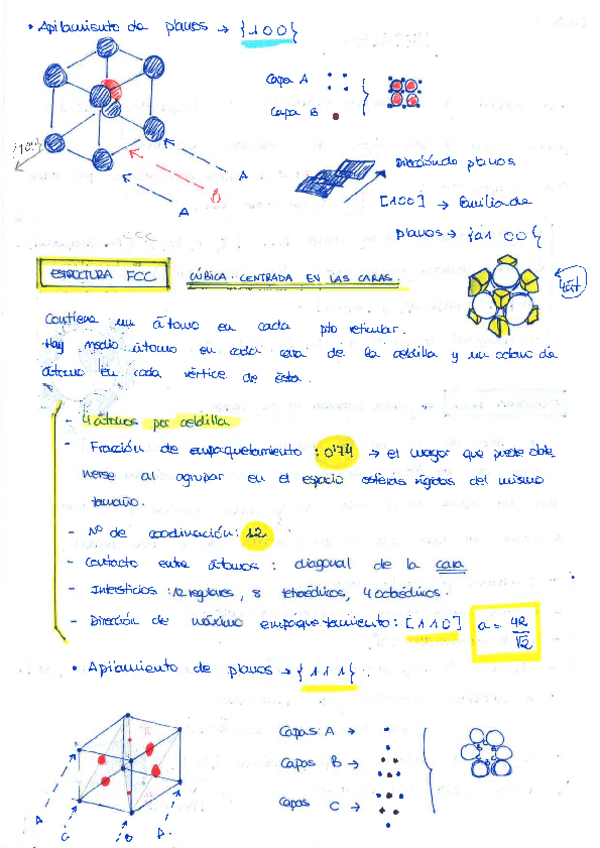 • Apilamiento de planos → {100}
Capa A
Capa B
A
B
A
Dirección de planos
[100] → familia de
planos → {100}
ESTRUCTURA FCC CÚBICA CENTRADA EN LAS CARAS.
4 át
Contiene un átomo en cada pto reticular.
Hay medio átomo en cada cara de la celdilla y un octavo de
átomo en cada vértice de ésta.
- 4 átomos por celdilla
- Fracción de empaquetamiento: 0'74 → el mayor que puede obte
nerse al agrupar en el espacio esferas rígidas del mismo
tamaño.
- Nº de coordinación: 12
- Contacto entre átomos: diagonal de la cara
- Intersticios: 12 regulares, 8 tetraédricos, 4 octaédricos.
- Dirección de máximo empaquetamiento: [110] a = 4R/√2
• Apilamiento de planos → {111}.
Capas A →
Capas B →
Capas C →
A C B A